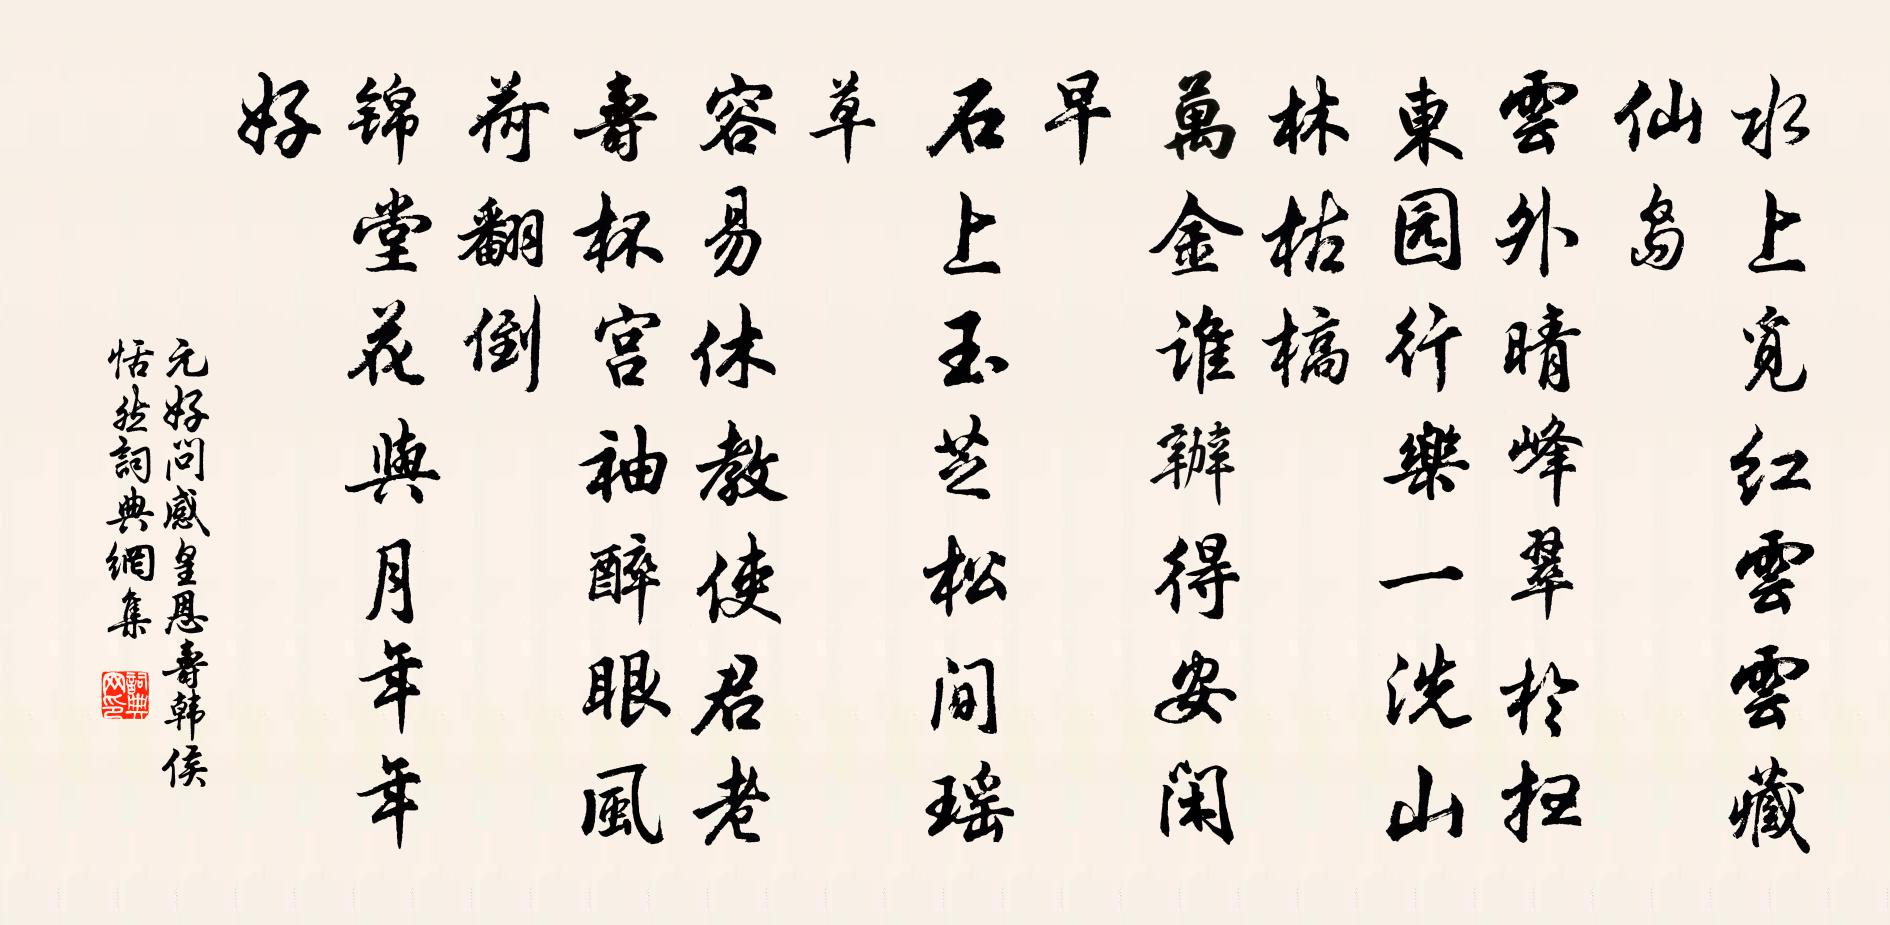 水上觅红雲雲藏
仙岛
雲外晴峰翠於扫
東园行樂一洗山
林枯槁
萬金谁辦得安闲
早
石上玉芝松间瑶
草
容易休教使君老
壽杯宫袖醉眼風
荷翻倒
锦堂花與月年年
好
元好问感皇恩壽韩侯
恬然詞典網集
詞典
网印